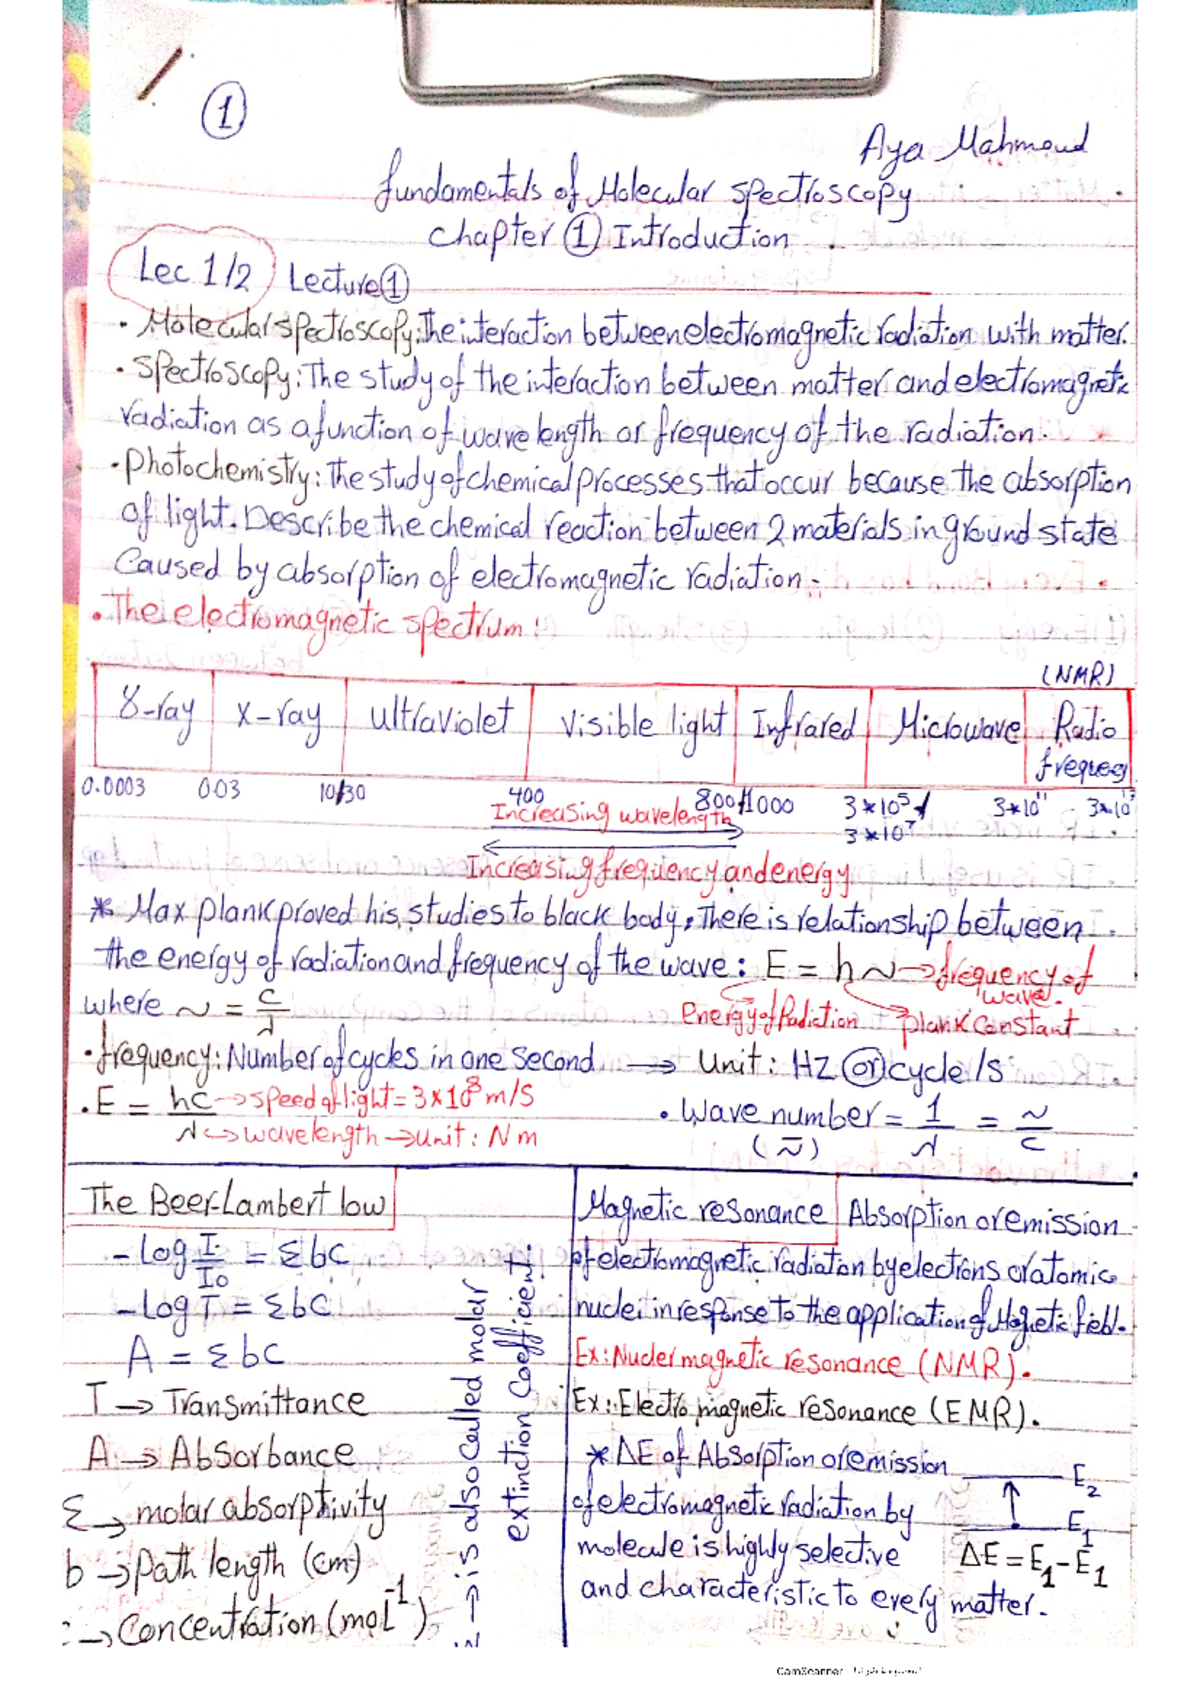 ①
Aya Mahmoud
fundamentals of Molecular spectroscopy
Chapter ① Introduction
Lec 1/2 Lecture①
• Molecular spectroscopy: The interaction between electromagnetic radiation with matter.
• Spectroscopy: The study of the interaction between matter and electromagnetic
radiation as a function of wave length or frequency of the radiation.
• Photochemistry: The study of chemical processes that occur because the absorption
of light. Describe the chemical reaction between 2 materials in ground state
Caused by absorption of electromagnetic radiation.
• The electromagnetic spectrum:
(NMR)
8-ray x-ray ultraviolet visible light Infrared Microwave Radio
frequecy
0.0003 0.03 10/30 400 800/1000 3*10⁵/ 3*10¹¹ - 3*10¹³
3*10⁷
Increasing wavelength
Increasing frequency and energy
* Max plank proved his studies to black body, There is relationship between
the energy of radiation and frequency of the wave: E = h~ → frequency of
wave.
where ~ = c/λ energy of Radiation plank Constant
• frequency: Number of cycles in one second → Unit: HZ (or) cycle/s
• E = hc/λ → speed of light = 3x10⁸ m/s
λ ↔ wavelength → unit: Nm
• Wave number = 1/λ = ~/c
(~̄)
The Beer-Lambert low
-Log I/Io = Σbc
-Log T = Σbc
A = Σbc
T → Transmittance
A → Absorbance
Σ → molar absorptivity
b → Path length (cm)
→ Concentration (moL⁻¹)
→ is also called molar
extinction Coefficient.
Magnetic resonance Absorption or emission
of electromagnetic radiaton by elections or atomic
nuclei in response to the application of Magnetic field.
Ex: Nucler magnetic resonance (NMR).
Ex: Electro magnetic resonance (EMR).
* ΔE of Absorption or emission
of electromagnetic radiation by
molecule is highly selective
and characteristic to every matter.
E₂
E₁
ΔE = E₁ - E₁
CamScanner